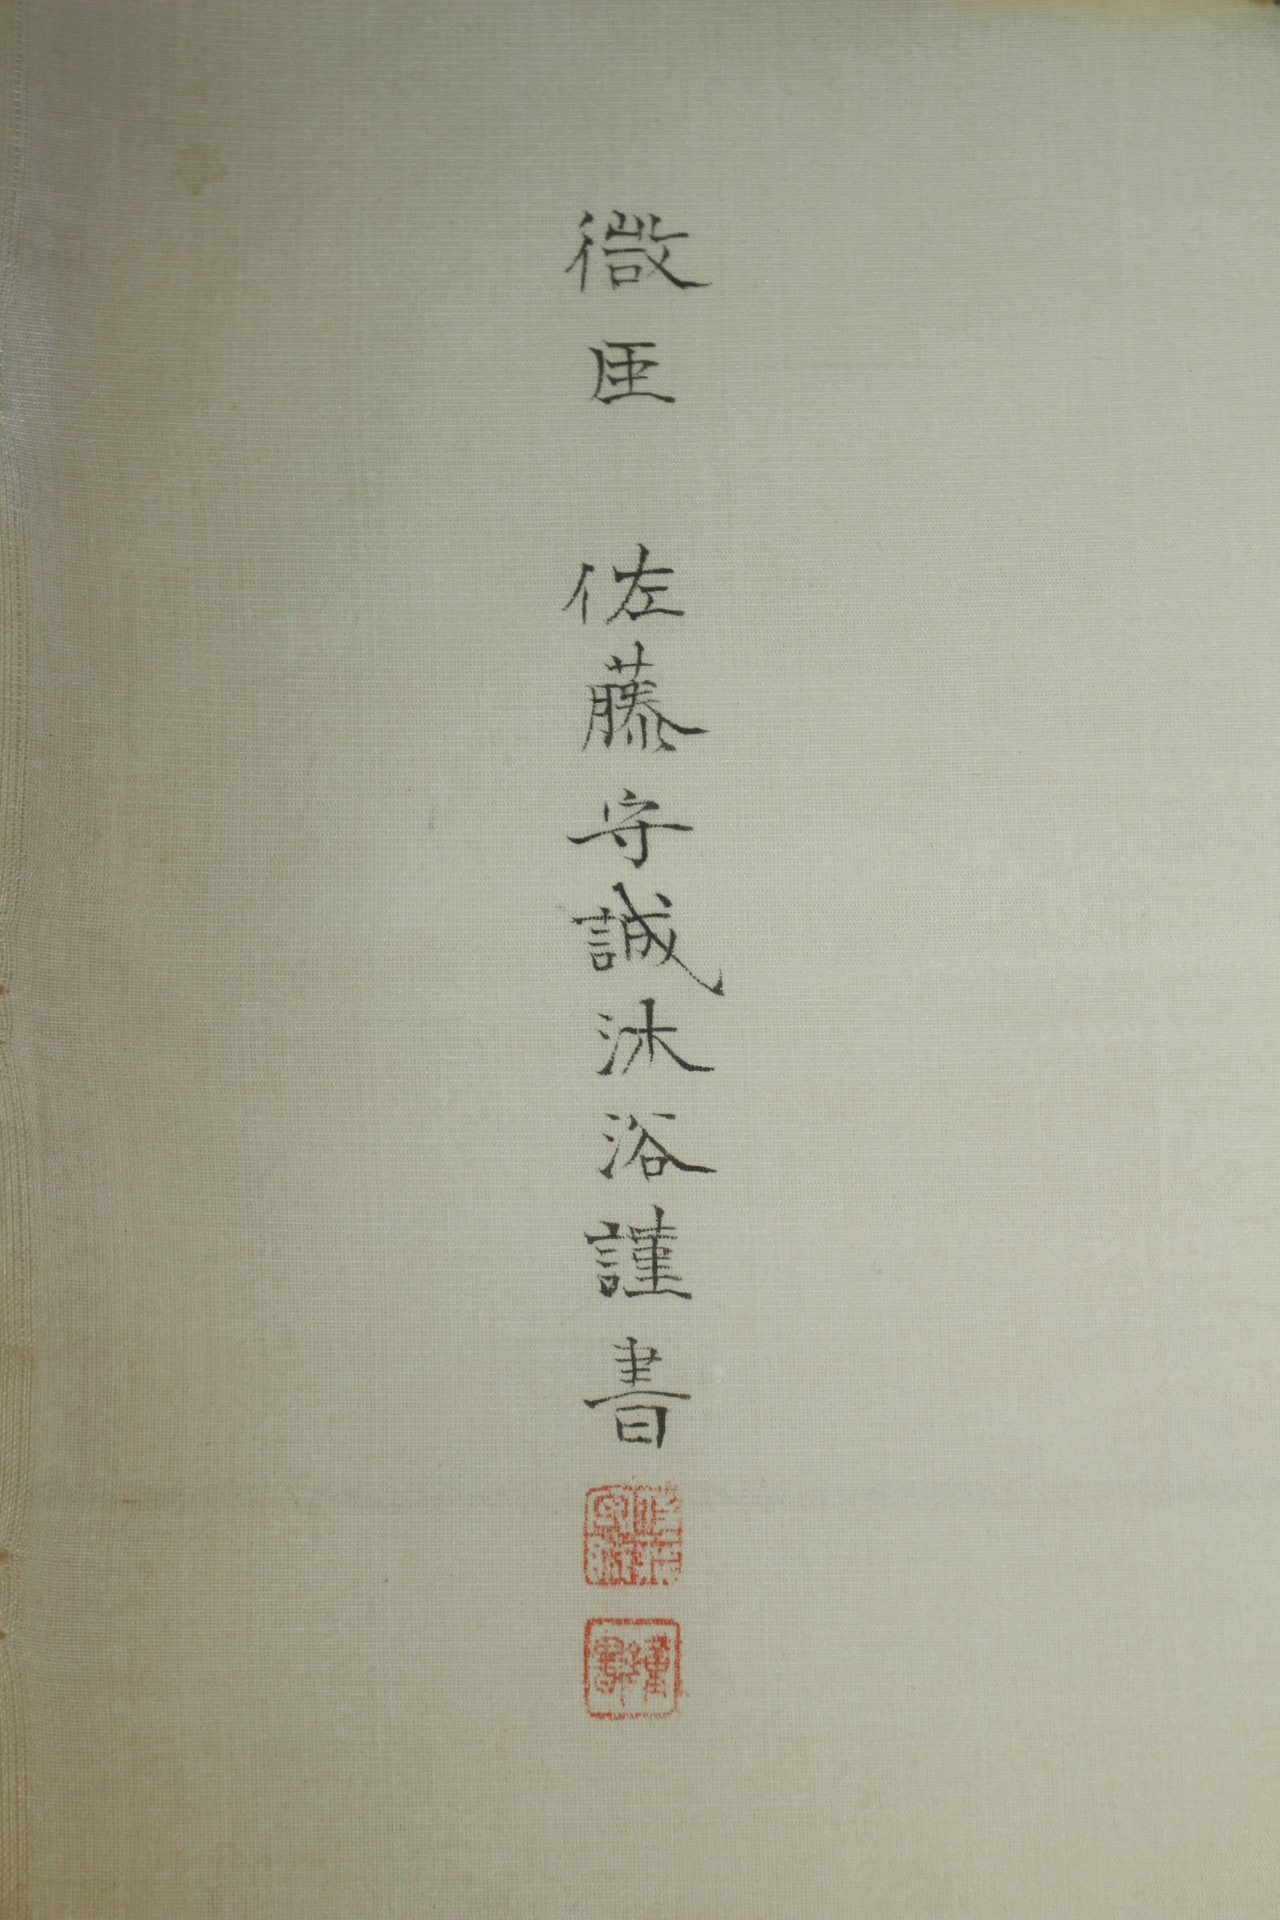 微臣 佐藤守誠沐浴謹書